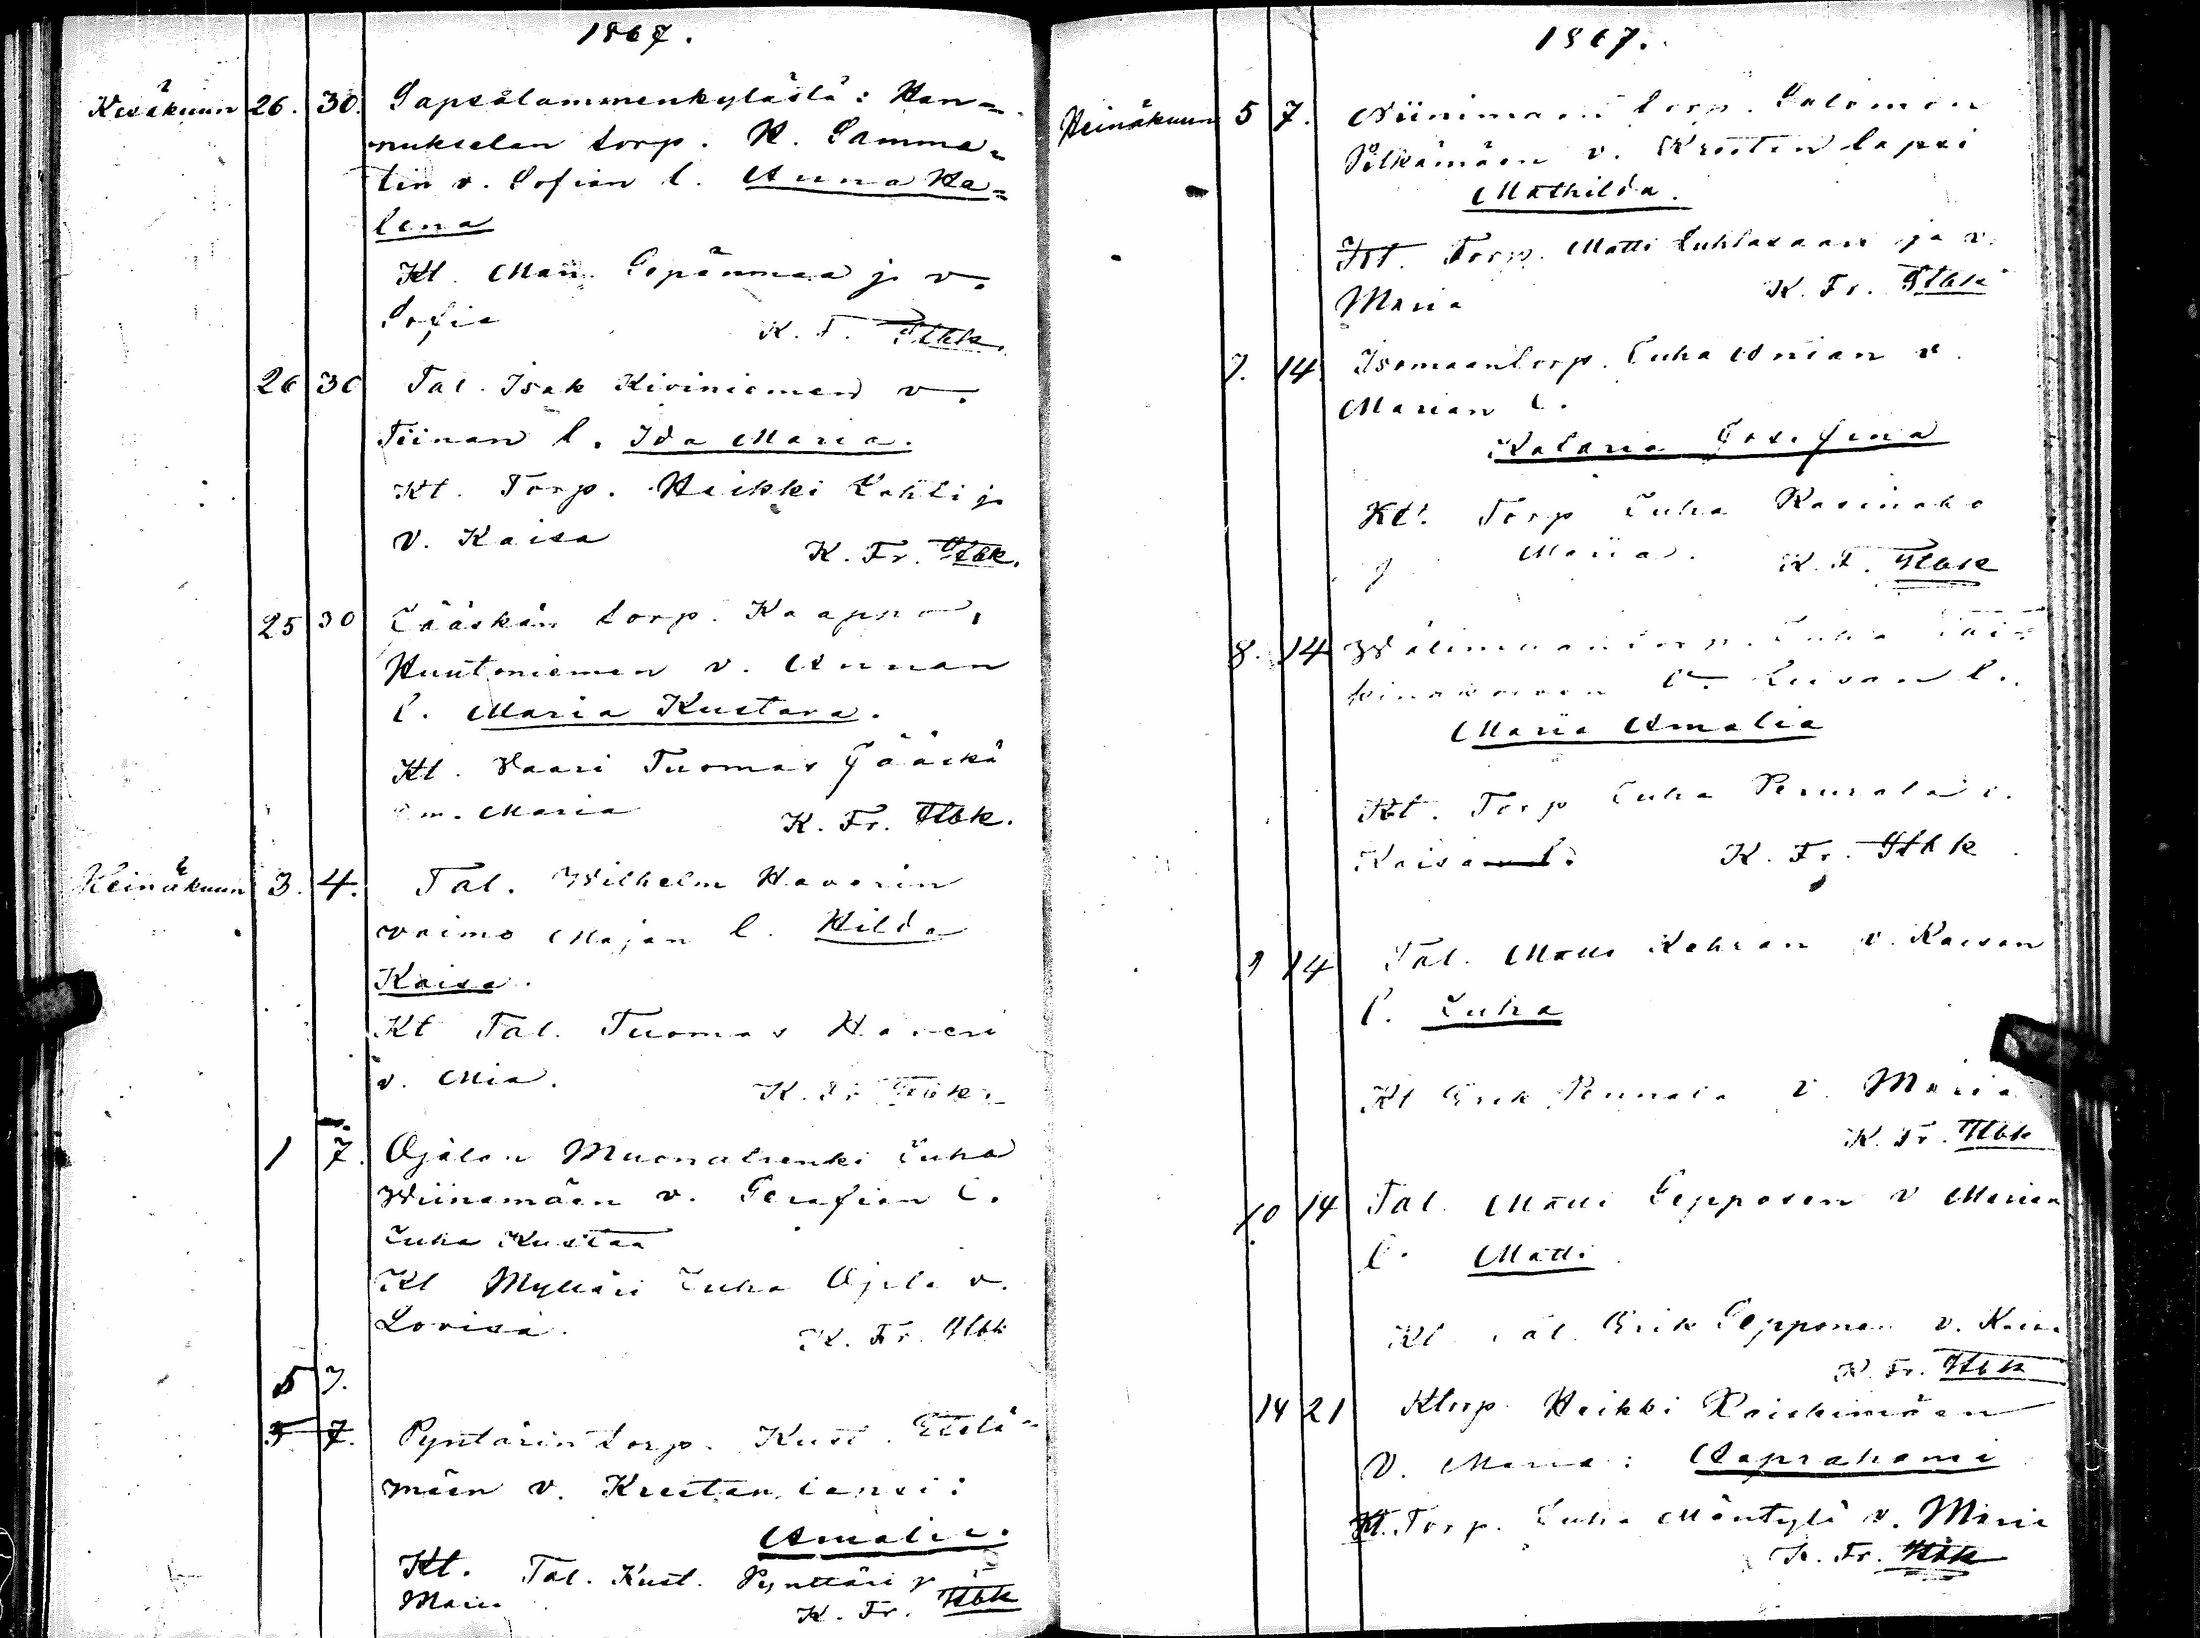 1867.
Kesäkuun 26. 30. Sapsalammenkylästä: Han=
nukselan torp. H. Samma=
tin v. Sofian l. Anna He=
lena
Kt. Man. Sepänmaa j. v.
Sofia K. F. Stbk.
26 30 Tal. Isak Kiviniemen v.
Tiinan l. Ida Maria.
Kt. Torp. Heikki Lahti j.
v. Kaisa K. Fr. Stbk.
25 30 Jääskän torp. Kaappo
Huutoniemen v. Annan
l. Maria Kustava.
Kt. Vaari Tuomas Jääskä
m. Maria K. Fr. Stbk.
Heinäkuun 3. 4. Tal. Wilhelm Haverin
vaimo Majan l. Hilda
Kaisa.
Kt Tal. Tuomas Haveri
v. Mia. K. Fr. Stbk.
1 7. Ojalan Muonalrenki Juha
Wiinamäen v. Serafian l.
Juha Kustaa
Kt Mylläri Juha Ojala v.
Lovisa. K. Fr. Stbk
5 7.
5 7. Pyntärin torp. Kust. Etelä=
mäen v. Kreetan lapsi:
Amalia.
Kt. Tal. Kust. Pynttäri j.
Maria K. Fr. Stbk
1867.
Heinäkuun 5 7. Niinimaan torp. Salomon
Pitkämäen v. Kreetan lapsi
Mathilda.
Kt. Torp. Matti Luhtasaari ja v.
Maria K. Fr. Stbk
7. 14. Isomaan torp. Juha v.
Marian l.
Katarina Josefina
Kt. Torp Juha
j Maria. K. F. Stbk
8. 14 Wälimaan torp. Juha
v. Liisan l.
Maria Amalia
Kt. Torp Juha Perurala v.
Kaisa K. Fr. Stbk.
9 14 Tal. Matti v. Kaisan
l. Juha
Kt Erik Pennala v. Maria
K. Fr. Stbk
10 14 Tal. Matti Sepposen v Marian
l. Matti
Kt Tal. Erik Sepponen v. Kaisa
K. Fr. Stbk
14 21 Ktorp. Heikki Koiskimäen
v. Maria: Aaprahami
Kt. Torp. Juha Mäntylä v. Maria
K. Fr. Stbk